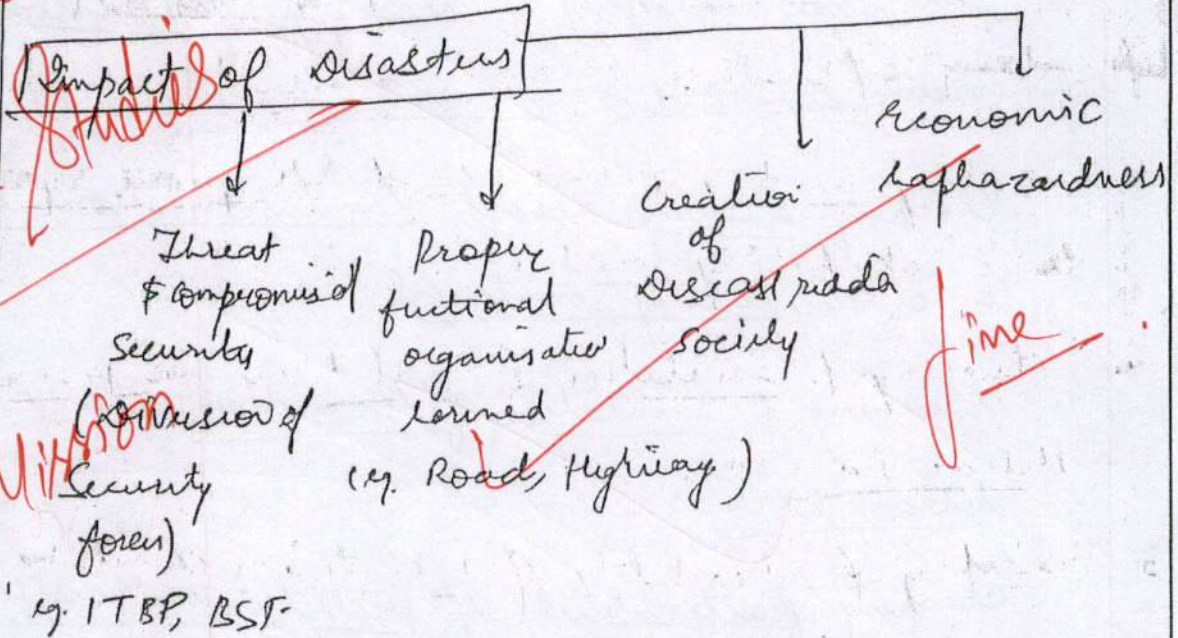 Impact of Disasters
Threat
& compromised
Security
(Diversion of
Security
forces)
eg. ITBP, BSF
Proper
fuctional
organisation
(eg. Road, Highway)
Creation
of
society
economic
haphazardness
Studies
Mission
fine